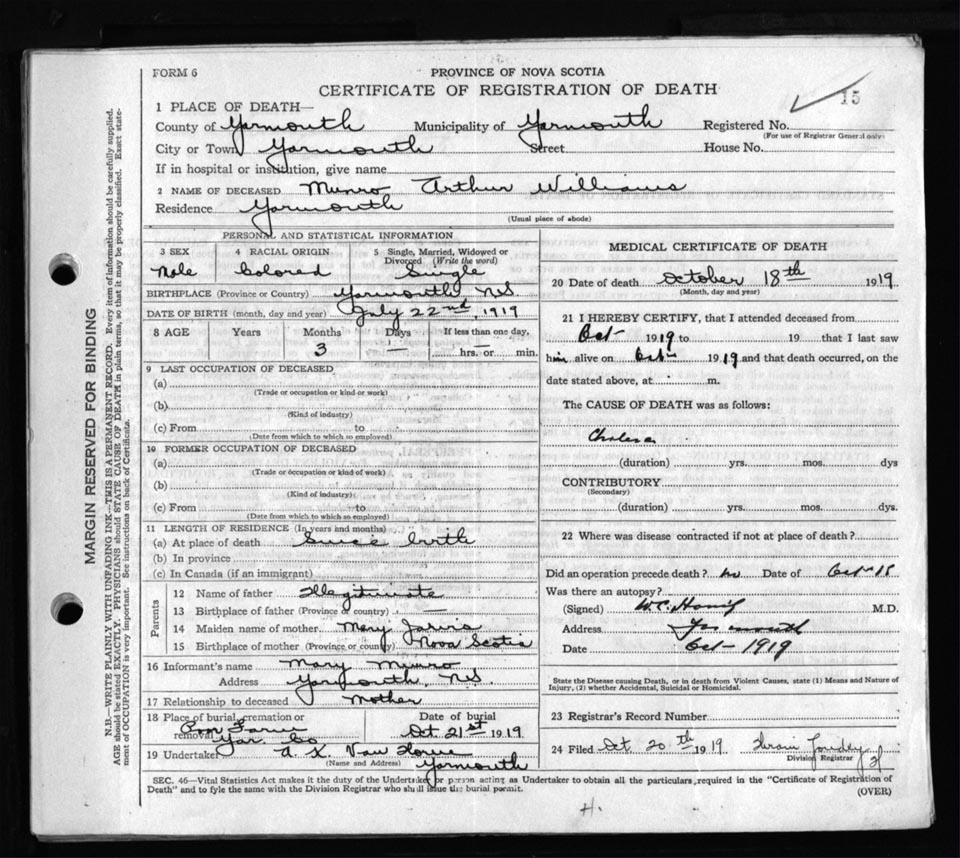 FORM 6
PROVINCE OF NOVA SCOTIA
CERTIFICATE OF REGISTRATION OF DEATH
15
1 PLACE OF DEATH—
County of Yarmouth Municipality of Yarmouth Registered No.
(For use of Registrar General only)
City or Town Yarmouth Street House No.
If in hospital or institution, give name
2 NAME OF DECEASED Munro Arthur Williams
Residence Yarmouth
(Usual place of abode)
PERSONAL AND STATISTICAL INFORMATION
3 SEX 4 RACIAL ORIGIN 5 Single, Married, Widowed or Divorced (Write the word)
Male Colored Single
BIRTHPLACE (Province or Country) Yarmouth, N.S.
DATE OF BIRTH (month, day and year) July 22nd, 1919
8 AGE Years Months Days If less than one day,
3 — hrs. or min.
9 LAST OCCUPATION OF DECEASED
(a)
(Trade or occupation or kind or work)
(b)
(Kind of industry)
(c) From to
(Date from which to which so employed)
10 FORMER OCCUPATION OF DECEASED
(a)
(Trade or occupation or kind of work)
(b)
(Kind of industry)
(c) From to
(Date from which to which so employed)
11 LENGTH OF RESIDENCE (In years and months)
(a) At place of death Since birth
(b) In province
(c) In Canada (if an immigrant)
Parents
12 Name of father Illegitimate
13 Birthplace of father (Province or country) —
14 Maiden name of mother Mary Jarvis
15 Birthplace of mother (Province or country) Nova Scotia
16 Informant's name Mary Munro
Address Yarmouth, N.S.
17 Relationship to deceased Mother
18 Place of burial, cremation or removal Poor Farm Yar. Co Date of burial Oct. 21st 1919
19 Undertaker Van Horne
(Name and Address) Yarmouth
MEDICAL CERTIFICATE OF DEATH
20 Date of death October 18th 1919
(Month, day and year)
21 I HEREBY CERTIFY, that I attended deceased from
Oct 1919 to 19 that I last saw
him alive on Oct 1919 and that death occurred, on the
date stated above, at m.
The CAUSE OF DEATH was as follows:
Cholera
(duration) yrs. mos. dys
CONTRIBUTORY
(Secondary)
(duration) yrs. mos. dys.
22 Where was disease contracted if not at place of death?
Did an operation precede death? no Date of Oct 18
Was there an autopsy?
(Signed) M.D.
Address Yarmouth
Date Oct 1919
State the Disease causing Death, or in death from Violent Causes, state (1) Means and Nature of
Injury, (2) whether Accidental, Suicidal or Homicidal.
23 Registrar's Record Number
24 Filed Oct. 20th 1919
Division Registrar
SEC. 46—Vital Statistics Act makes it the duty of the Undertaker or person acting as Undertaker to obtain all the particulars required in the "Certificate of Registration of
Death" and to fyle the same with the Division Registrar who shall issue the burial permit.
(OVER)
H.
MARGIN RESERVED FOR BINDING
N.B.—WRITE PLAINLY WITH UNFADING INK—THIS IS A PERMANENT RECORD. Every item of information should be carefully supplied.
AGE should be stated EXACTLY. PHYSICIANS should STATE CAUSE OF DEATH in plain terms, so that it may be properly classified. Exact state-
ment of OCCUPATION is very important. See instructions on back of Certificate.